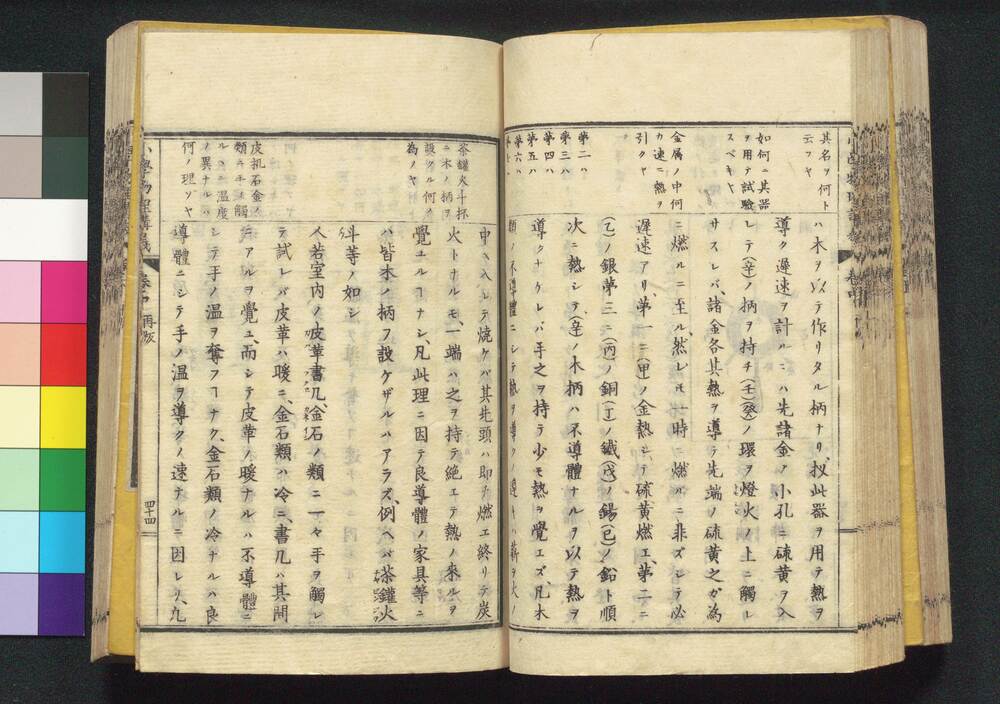 其名ヲ何ト
云フヤ
如何ニ其器
ヲ用テ試驗
スベキヤ
金属ノ中何
カ速ニ熱ヲ
引クヤ
第二ハ
第三ハ
第四ハ
第五ハ
第六ハ
ハ木ヲ以テ作リタル柄ナリ、扨此器ヲ用テ熱ヲ
導ク遲速ヲ計ルニハ先諸金ノ小孔ニ硫黄ヲ入
レテ(辛)ノ柄ヲ持チ(壬)(癸)ノ環ヲ燈火ノ上ニ觸レ
サスレバ、諸金各其熱ヲ導テ先端ノ硫黄之ガ為
ニ燃ルニ至ル、然レモ一時ニ燃ルニ非ズシテ必
遲速アリ、第一ニ(甲)ノ金熱シテ硫黄燃エ、第二ニ
(乙)ノ銀第三ニ(丙)ノ銅(丁)ノ鐵(戊)ノ錫(己)ノ鉛ト順
次ニ熱シテ(辛)ノ木柄ハ不導體ナルヲ以テ熱ヲ
導クナケレバ手之ヲ持テ少モ熱ヲ覺エズ、凡木
類ノ不導體ニシテ熱ヲ導クノ遲キハ薪ヲ火ノ
茶罐火斗抔
ニ木ノ柄ヲ
設クル何ノ
為ノヤ
皮机石金ノ
類ニ手ヲ觸
ルヽニ温度
ノ異ナルハ
何ノ理ソヤ
中ヘ入レテ燒ケバ其先頭ハ即チ燃エ終リテ炭
火トナルモ、一端ハ之ヲ持テ絶エテ熱ノ來ルヲ
覺ユルヿナシ、凡此理ニ因テ良導體ノ家具等ニ
ハ皆木ノ柄ヲ設ケザルハアラズ、例ヘバ茶罐火
斗等ノ如シ
人若室内ノ皮革書几金石ノ類ニ一々手ヲ觸レ
テ試レバ皮革ハ暖ニ、金石類ハ冷ニ、書几ハ其間
ニアルヲ覺ユ、而シテ皮革ノ暖ナルハ不導體ニ
シテ手ノ温ヲ奪フヿナク、金石類ノ冷ナルハ良
導體ニシテ手ノ温ヲ導クノ速ナルニ因レリ、九
四十四